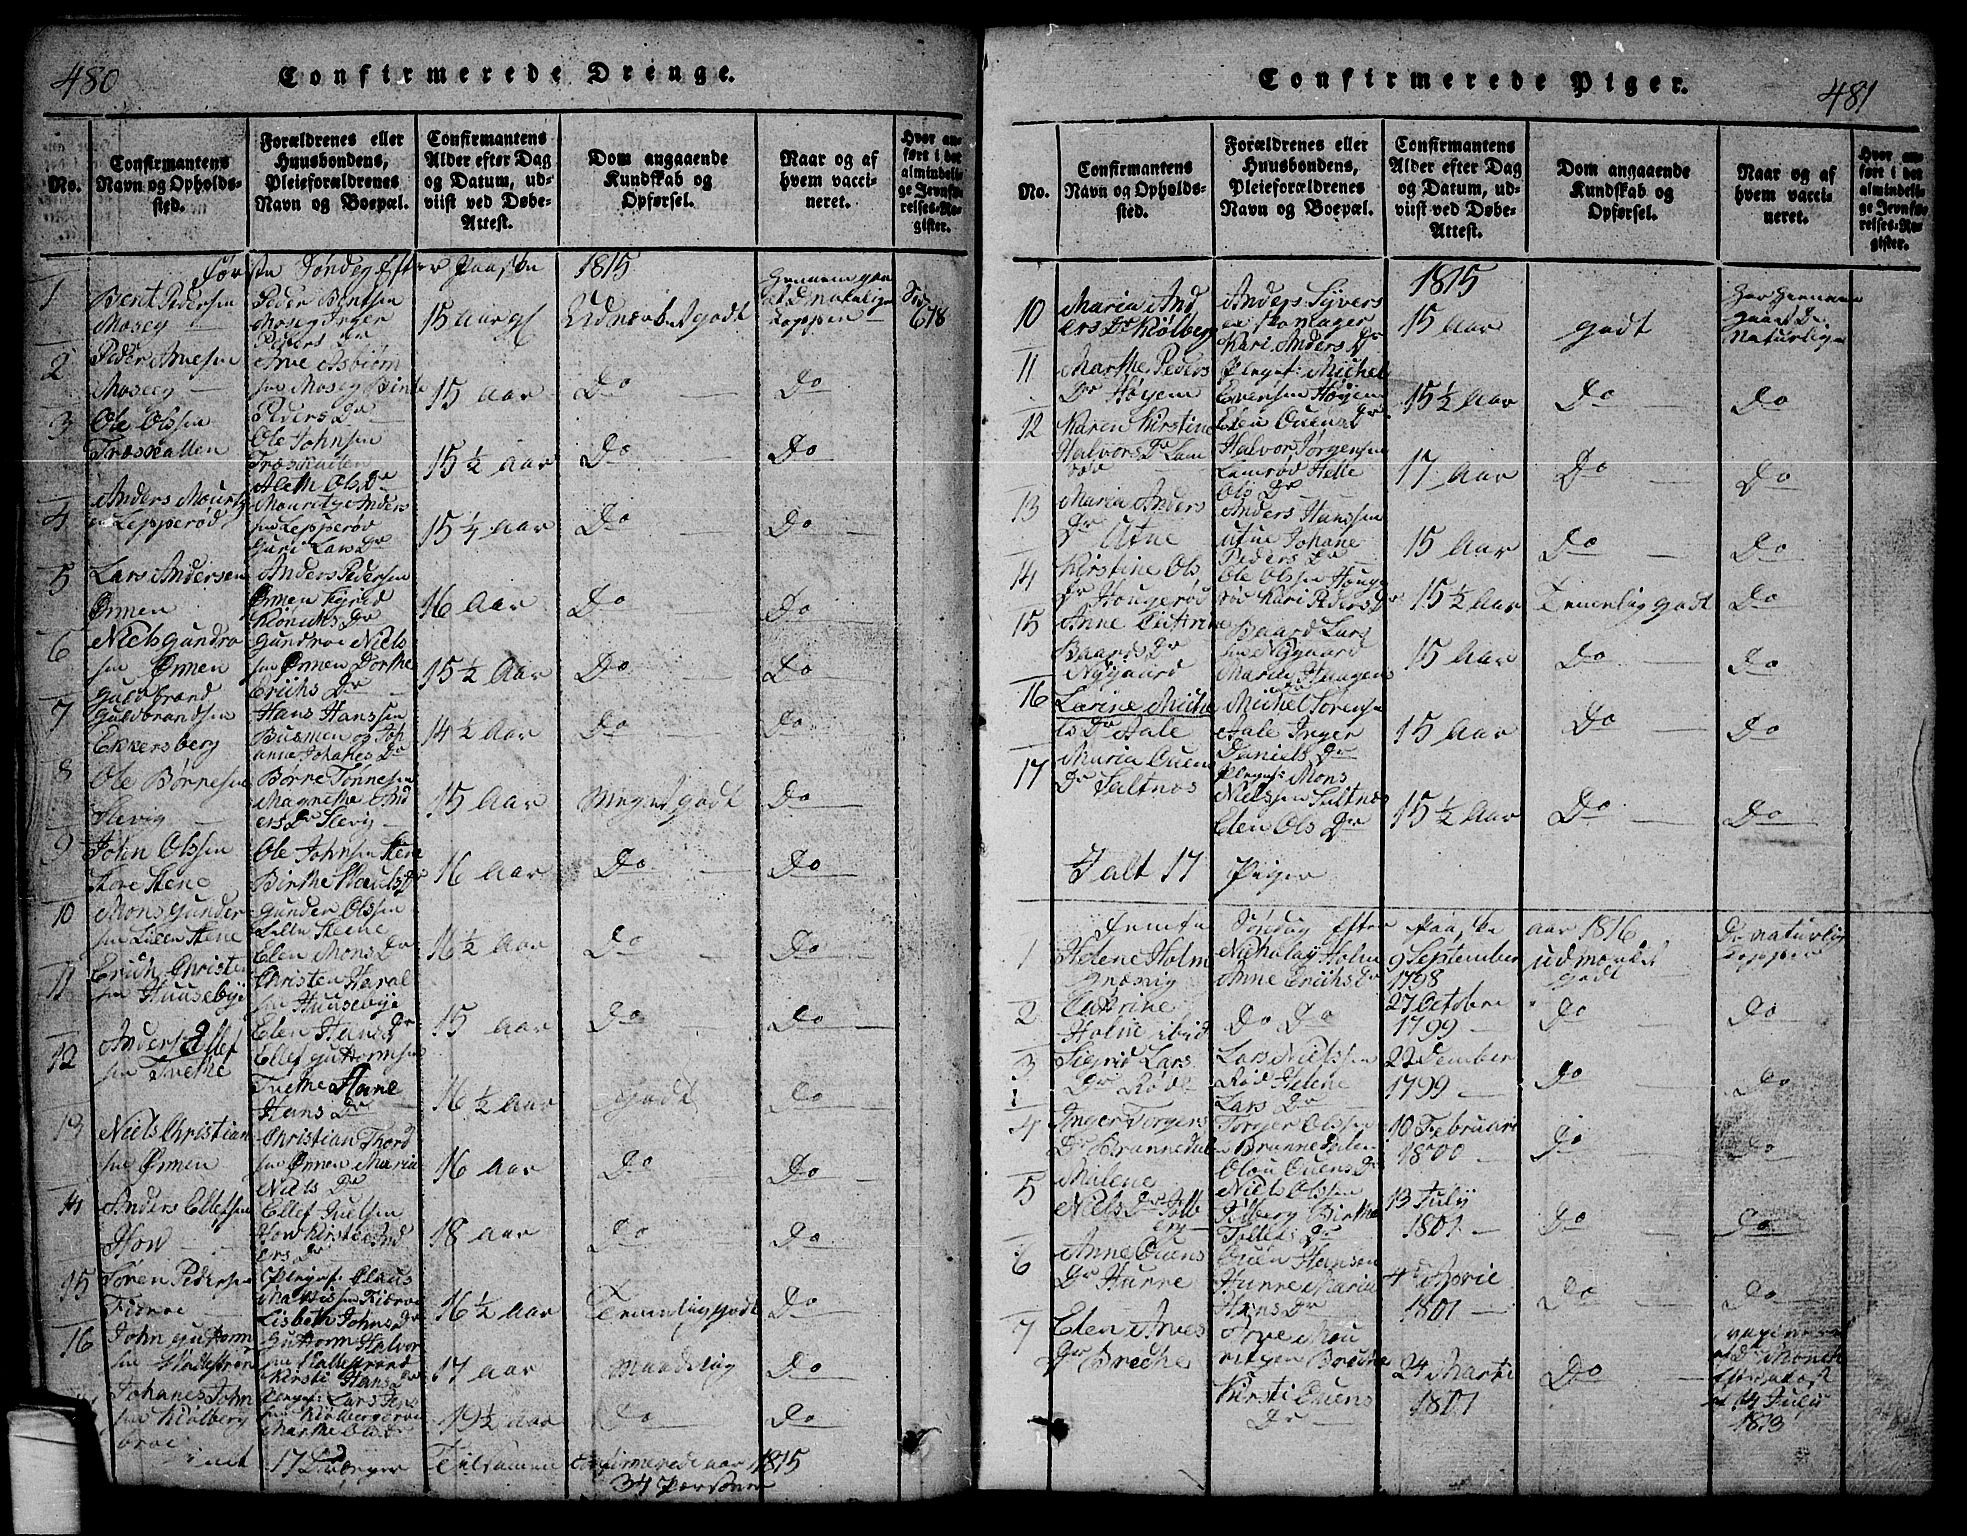 480
Confirmerede Drenge.
No.
Confirmantens
Navn og Opholds-
sted.
Forældrenes eller
Huusbondens,
Pleieforældrenes
Navn og Boepæl.
Confirmantens
Alder efter Dag
og Datum, ud-
viist ved Døbe-
Attest.
Dom angaaende
Kundskab og
Opførsel.
Naar og af
hvem vacci-
neret.
Hvor an-
ført i det
almindeli-
ge Jevnfø-
relses-Re-
gister.
Første Søndag Efter Paaske 1815
1
Bent Pedersen
Moseg
Peder Bentsen
Moseg Inger
Peders Dr
15 aar gl
Udmærket godt
Naturlige
Kopper
678
2
Peder Arnesen
Moseg
Arne Asbiørn
sen Moseg
Peders Dr
15 aar
Do
Do
3
Ole Olsen
Træskallen
Ole Johnsen
Træskallen
Aleth Ols Dr
15 ½ aar
Do
Do
4
Anders Mouritz
sen Lepperød
Mouritz Anders
sen Lepperød
Guri Lars Dr
15 ¼ aar
Do
Do
5
Lars Andersen
Ørmen
Anders Pedersen
Ørmen
Dr
16 Aar
Do
Do
6
Niels Gundro
sen Ørmen
Gundroe Niels
sen Ørmen Dorthe
Erichs Dr
15 ½ Aar
Do
Do
7
Guldbrand
Guldbrandsen
Ekkersberg
Hans Hanssen
Busmen og Joh
anne Johanes Dr
14 ½ Aar
Do
Do
8
Ole Børnesen
Slevig
Børre Tønnesen
Magrethe And
ers Dr Slevig
15 Aar
Meget godt
Do
9
John Olsen
Store Stene
Ole Johnsen Stene
Birthe Povels Dr
16 Aar
Do
Do
10
Mons Gunder
sen Lilen Stene
Gunder Olsen
Lilen Steene
Elen Mons Dr
16 ½ Aar
Do
Do
11
Erich Christen
sen Huusebye
Christen Haral
sen Huusebye
Elen Hans Dr
15 Aar
Do
Do
12
Anders Ellef
sen Tvethe
Ellef Guttormsen
Tvethe Anne
Hans Dr
16 ½ Aar
Godt
Do
13
Niels Christian
sen Ørmen
Christian Thord
sen Ørmen Maria
Niels Dr
16 Aar
Do
Do
14
Anders Ellefsen
How
Ellef Juelsen
How Kirsti And
ers Dr
18 aar
Do
Do
15
Søren Pedersen
Fibroe
Plegef: Claus
Mathissen Fibroe
Lisbeth Johns Dr
16 ½ Aar
Temmelig godt
Do
16
John Guttorm
sen Hallestrøm
Guttorm Halvor
sen Hallestrand
Kirsti Hans Dr
17 aar
Maadelig
Do
Johanes John
sen Kiølberg
broe
Plegef: Lars Jens
sen Kiølbergbroe
Marthe Ols Dr
19 ½ Aar
Do
Do
17 Drenger
Tilsamen Confirmerede aar 1815
34 Personer
Confirmerede Piger.
481
No.
Confirmantens
Navn og Opholds-
sted.
Forældrenes eller
Huusbondens,
Pleieforældrenes
Navn og Boepæl.
Confirmantens
Alder efter Dag
og Datum, ud-
viist ved Døbe-
Attest.
Dom angaaende
Kundskab og
Opførsel.
Naar og af
hvem vacci-
neret.
Hvor an-
ført i det
almindeli-
ge Jevnfø-
relses-Re-
gister.
1815
10
Maria And
ers Dr Kiølberg
Anders Syvers
sen Skomager
Kari Anders Dr
15 Aar
godt
Har Gennem
gaaet De
Naturlige
11
Marthe Peders
Dr Høyem
Plegef: Michel
Evensen Høyem
Elen Ouens Dr
15 ½ Aar
Do
Do
12
Karen Kirstine
Halvors Dr Lam
rød
Halvor Jørgensen
Lamrød Helle
Ols Dr
17 Aar
Do
Do
13
Maria Anders
Dr Utne
Anders Hanssen
Utne Johane
Peders Dr
15 Aar
Do
Do
14
Kirstine Ols
Dr Hougerød
Ole Olssen Houge
rød Kari Peders Dr
15 ½ Aar
Temmelig godt
Do
15
Anne Cathrine
Baards Dr
Nygaard
Baard Lars
sen Nygaard
Maria Haagen
Dr
15 Aar
Do
Do
16
Larine Miche
ls Dr Aale
Michel Sørensen
Aale Inger
Daniels Dr
15 Aar
Do
Do
17
Maria Ouens
Dr Saltnæs
Plegef: Mons
Nielssen Saltnæs
Elen Ols Dr
15 ½ Aar
Do
Do
I alt 17 Piger
Femte Søndag Efter Paaske aar 1816
1
Helene Holm
Nicholay Holm
Anne Erichs Dr
9 September
1798
udmærket
godt
De naturlige
Kopper
2
Cathrine
Holm ibid
Do Do
27 Octobre
1799
Do
Do
3
Sigrid Lars
Dr Rød
Lars Nielssen
Rød Helene
Lars Dr
22 Dember
1799
Do
Do
4
Inger Torgers
Dr Brunnedalen
Torger Olssen
Brunnedalen
Olou Ouens Dr
10 Februari
1800
Do
Do
5
Malene
Niels Dr
Niels Olssen
Birthe
Tollefs Dr
13 Julij
1801
Do
Do
6
Anne Ouens
Dr Hunne
Ouen Hansen
Hunne Maria
Hans Dr
4de April
1801
Do
Do
7
Elen Arnes
Dr Bredhe
Arne Mou
ritzen Bredhe
Kirsti Ouens
Dr
24 Marti
1801
Do
Vaccineret
af Dr Münch
14 Julij
1813